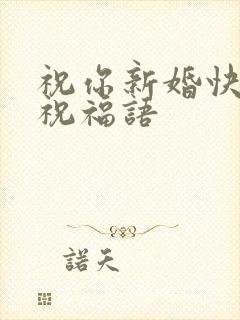 祝你新婚快
祝福語
諾天